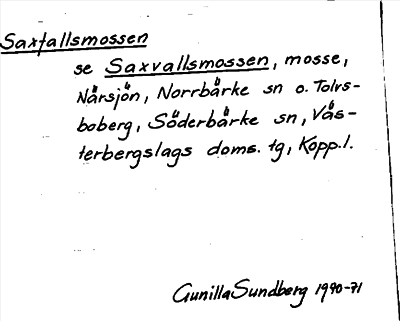 Saxfallsmossen
se Saxvallsmossen, mosse,
Närsjön, Norrbärke sn o. Tolvs-
boberg, Söderbärke sn, Väs-
terbergslags doms. tg, Kopp.l.
Gunilla Sundberg 1970-71